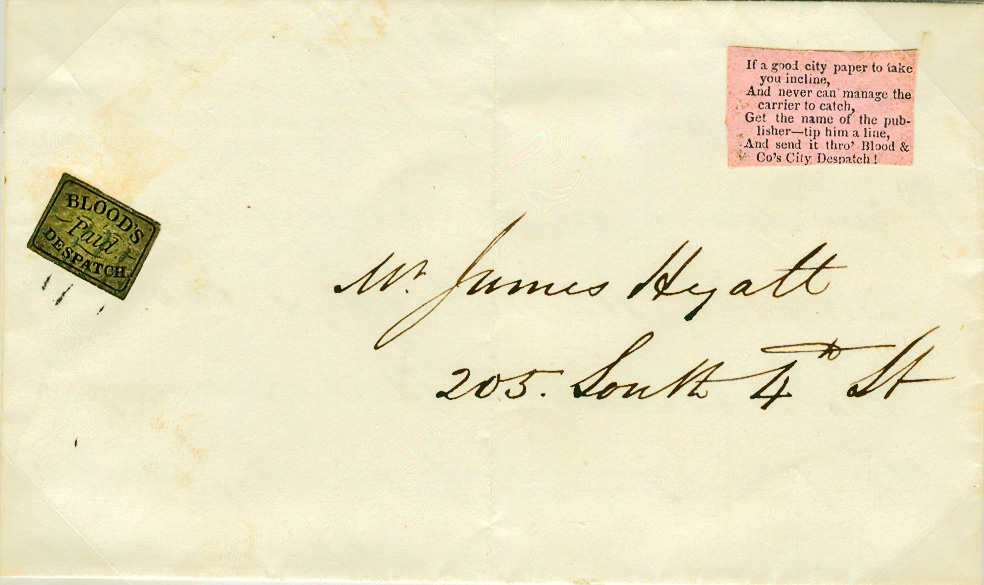 If a good city paper to take
you incline,
And never can manage the
carrier to catch,
Get the name of the pub-
lisher—tip him a line,
And send it thro' Blood &
Co's City Despatch!
BLOOD'S
Paid
DESPATCH
Mr. James Hyatt
205. South 4th St